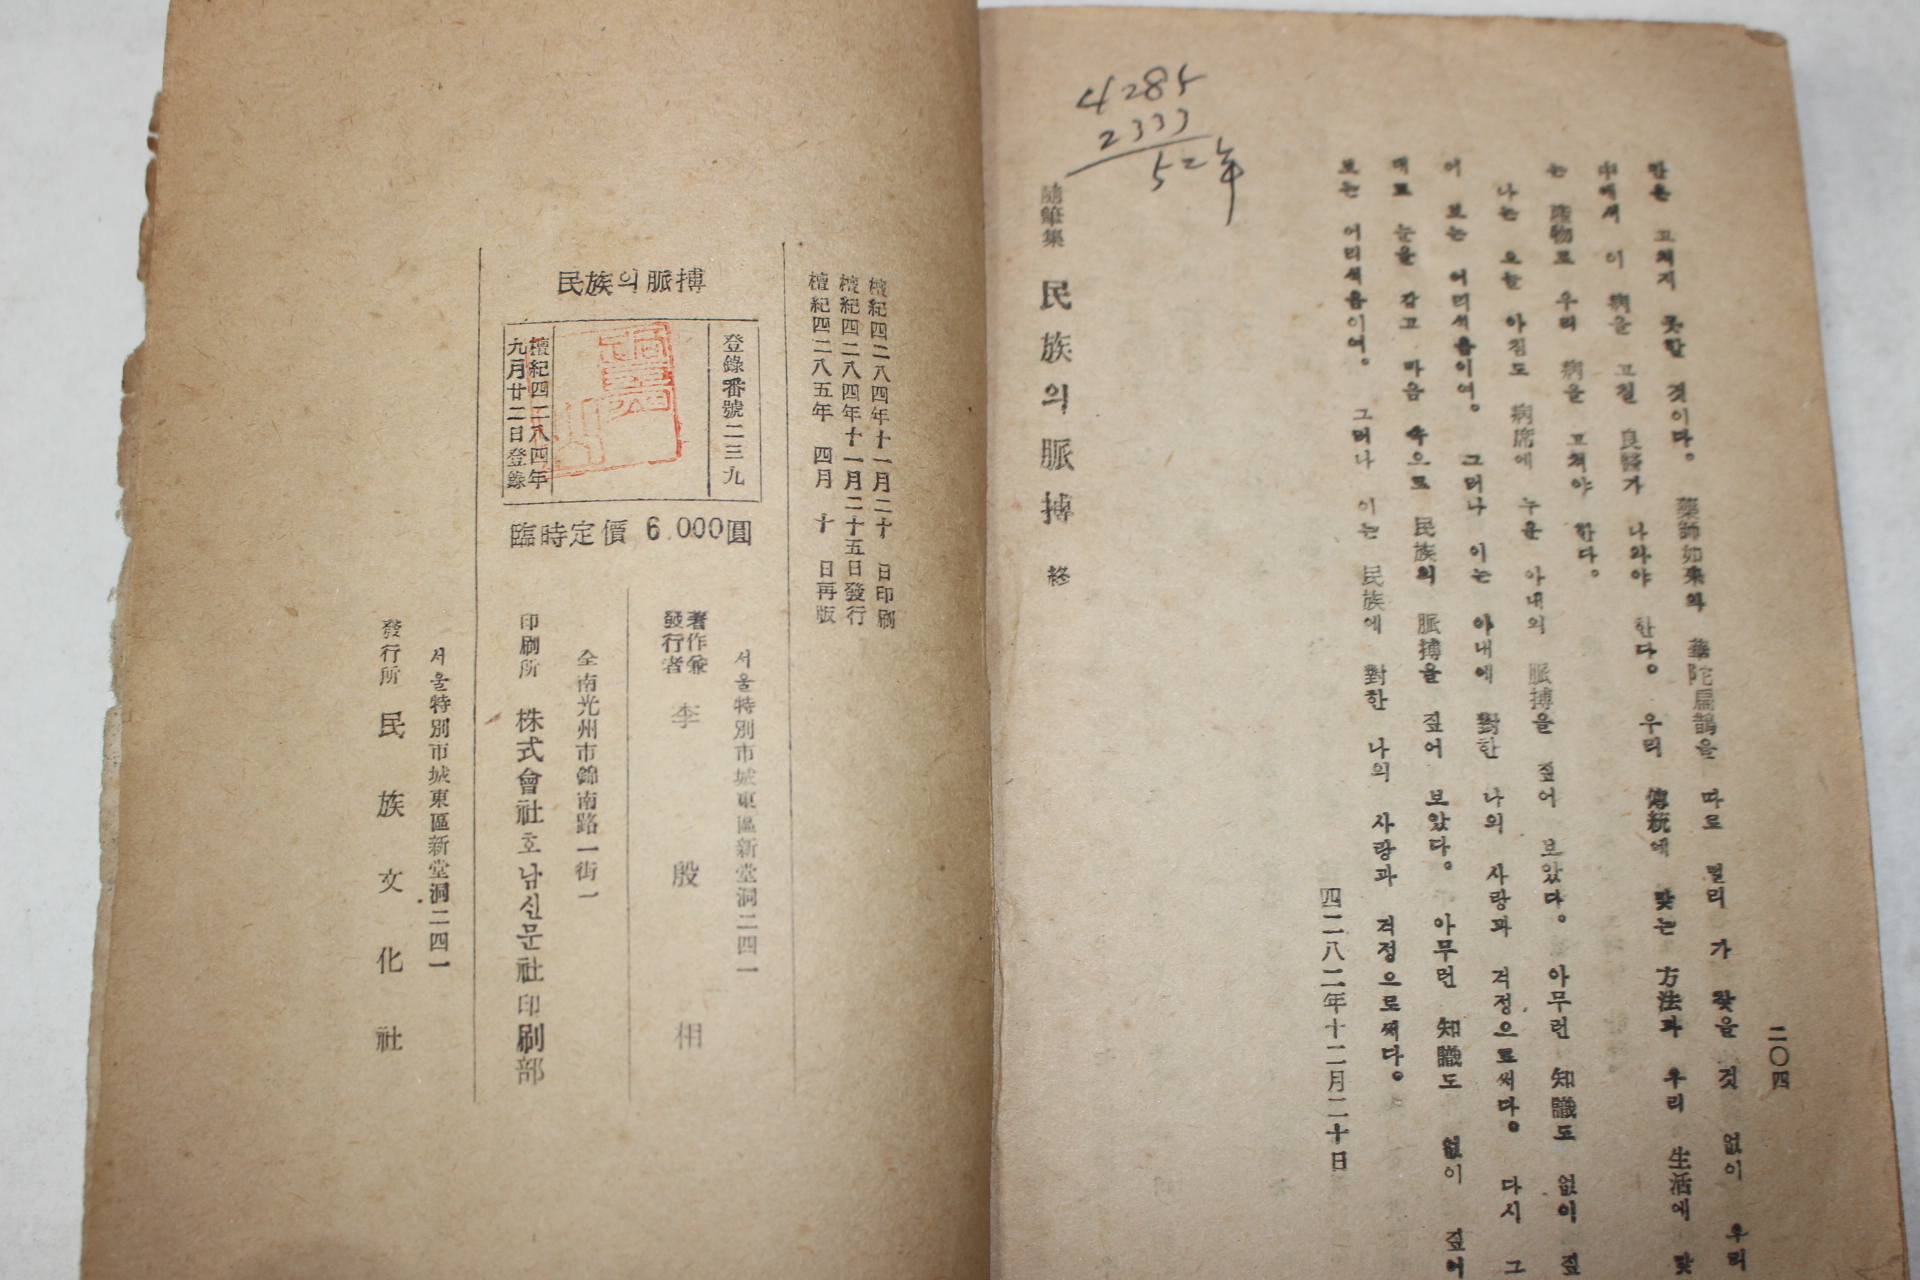 二〇四
만은 고쳐지 못할 것이다。 藥師如來와 華陀扁鵲을 따로 멀리 가 찾을 것 없이 우리
中에서 이 病을 고칠 良醫가 나와야 한다。 우리 傳統에 맞는 方法과 우리 生活에 맞
는 産物로 우리 病을 고쳐야 한다。
나는 오늘 아침도 病席에 누운 아내의 脈搏을 짚어 보았다。 아무런 知識도 없이 짚
어 보는 어리석음이여。 그러나 이는 아내에 對한 나의 사랑과 걱정으로써다。 다시 그
대로 눈을 감고 마음 속으로 民族의 脈搏을 짚어 보았다。 아무런 知識도 없이 짚어
보는 어리석음이여。 그러나 이는 民族에 對한 나의 사랑과 걱정으로써다。
四二八二年十二月二十日
隨筆集 民族의脈搏 終
4285
2333
52年
檀紀四二八四年十一月二十 日印刷
檀紀四二八四年十一月二十五日發行
檀紀四二八五年 四月 十 日再版
民族의脈搏
登錄番號二三九
檀紀四二八四年
九月廿二日登錄
臨時定價 6.000圓
서울特別市城東區新堂洞二四一
著作兼
發行者 李殷相
全南光州市錦南路一街一
印刷所 株式會社호남신문社印刷部
서울特別市城東區新堂洞二四一
發行所 民族文化社